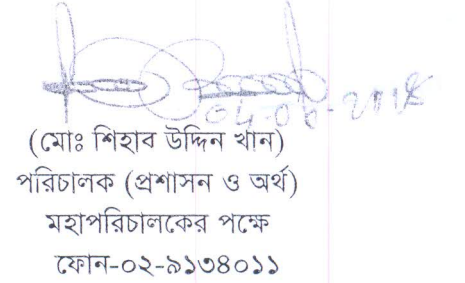 (মোঃ শিহাব উদ্দিন খান)
পরিচালক (প্রশাসন ও অর্থ)
মহাপরিচালকের পক্ষে
ফোন-০২-৯১৩৪০১১